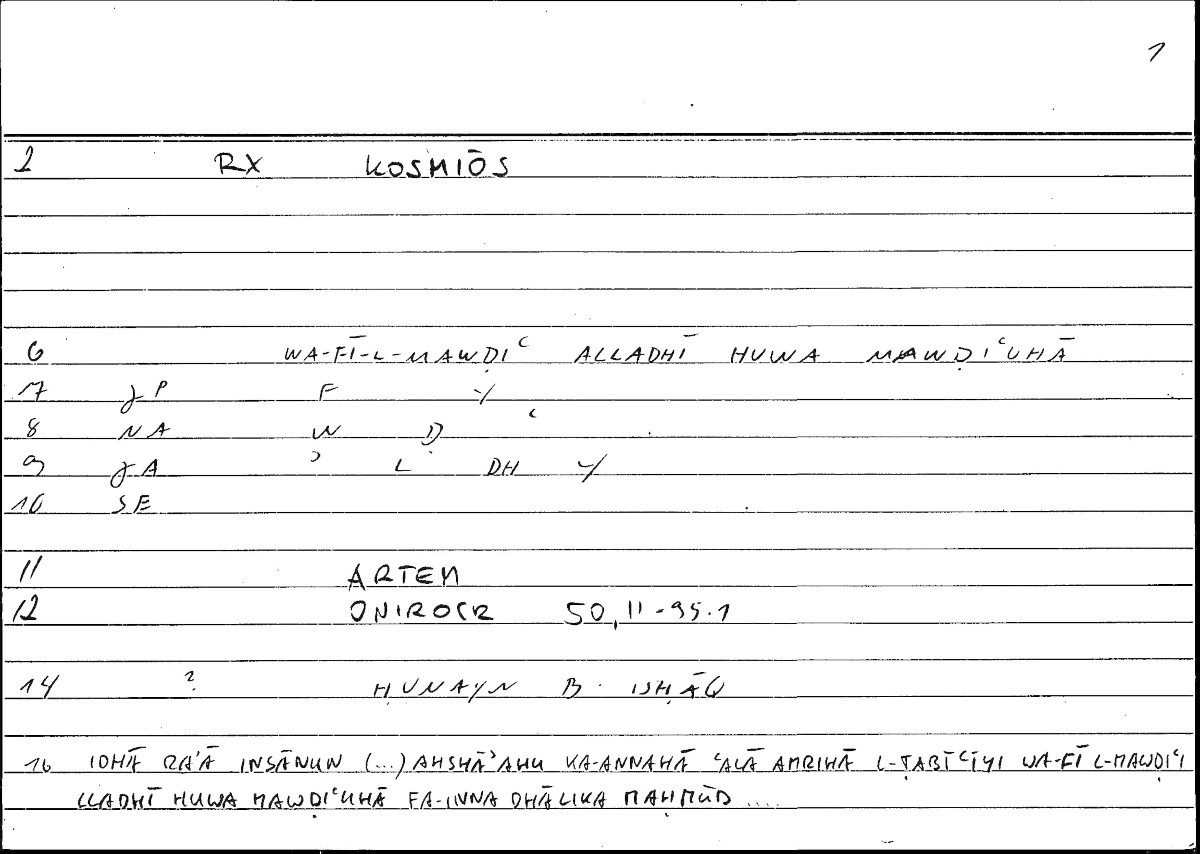 1
2 RX KOSMIŌS
6 WA-FĪ-L-MAWḌIʿ ALLADHĪ HUWA MAWḌIʿUHĀ
7 JP F Y
8 NA W Ḍ ʿ
9 JA ʾ L DH Y
10 SE
11 ARTEM
12 ONIROCR 50,11-95.1
14 ? ḤUNAYN B. ISḤĀQ
16 IDHĀ RAʾĀ INSĀNUN (...) AḤSHĀʾAHU KA-ANNAHĀ ʿALĀ AMRIHĀ L-ṬABĪʿĪYI WA-FĪ L-MAWḌIʿI
LLADHĪ HUWA MAWḌIʿUHĀ FA-INNA DHĀLIKA MAḤMŪD ....